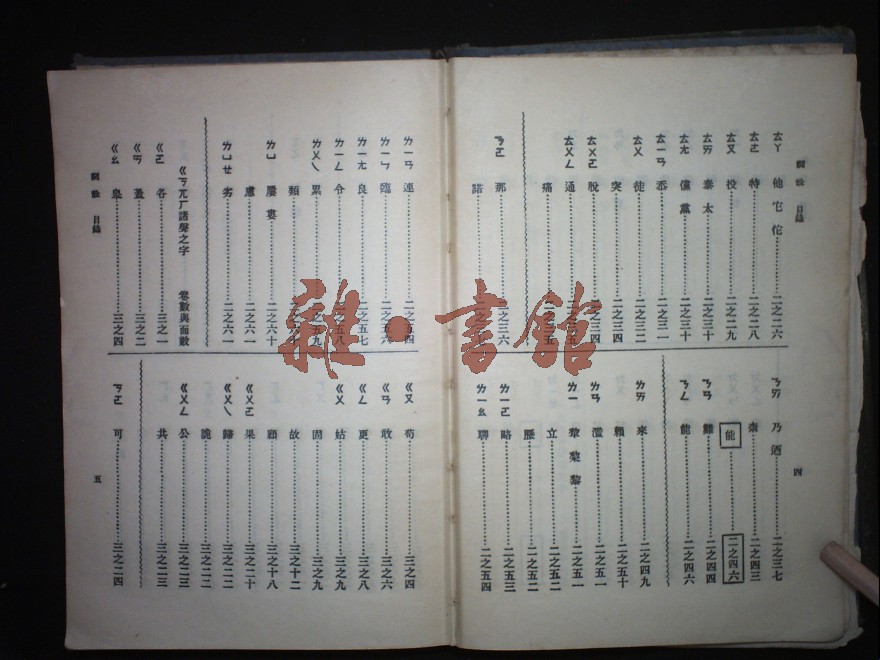 詞詮 目錄
ㄊㄚ 他它佗……二之二六
ㄊㄜ 特……二之二八
ㄊㄡ 投……二之二九
ㄊㄞ 泰太……二之三十
ㄊㄤ 儻黨……二之三十
ㄊㄧㄢ 忝……二之三一
ㄊㄨ 徒……二之三二
突……二之三四
ㄊㄨㄛ 脫……二之三四
ㄊㄨㄥ 通
痛
那……二之三六
諾
ㄋㄞ 乃迺……二之三七
柰……二之四三
能……二之四六
ㄋㄢ 難……二之四四
ㄋㄥ 能……二之四六
ㄌㄞ 來……二之四九
賴……二之五十
ㄌㄢ 濫……二之五一
ㄌㄧ 犂黎……二之五一
立……二之五二
歷……二之五二
略……二之五三
ㄌㄧㄠ 聊……二之五四
四
ㄌㄧㄢ 連……二之五四
ㄌㄧㄣ 臨……二之五六
ㄌㄧㄤ 良……二之五七
ㄌㄧㄥ 令……二之五八
ㄌㄨㄟ 累……二之五九
類
ㄌㄩ 屢婁……二之六十
慮……二之六一
ㄌㄩㄝ 劣……二之六一
ㄍㄎㄫㄏ諸聲之字 卷數與面數
ㄍㄜ 各……三之一
ㄍㄞ 蓋……三之二
ㄍㄠ 皋……三之四
ㄍㄡ 苟……三之四
ㄍㄢ 敢……三之六
ㄍㄥ 更……三之八
ㄍㄨ 姑……三之九
固……三之九
故……三之十二
顧……三之十八
ㄍㄨㄛ 果……三之二十
ㄍㄨㄟ 歸……三之二二
詭……三之二二
ㄍㄨㄥ 公……三之二三
共……三之二三
ㄎㄜ 可……三之二四
詞詮 目錄
五
雜·書館